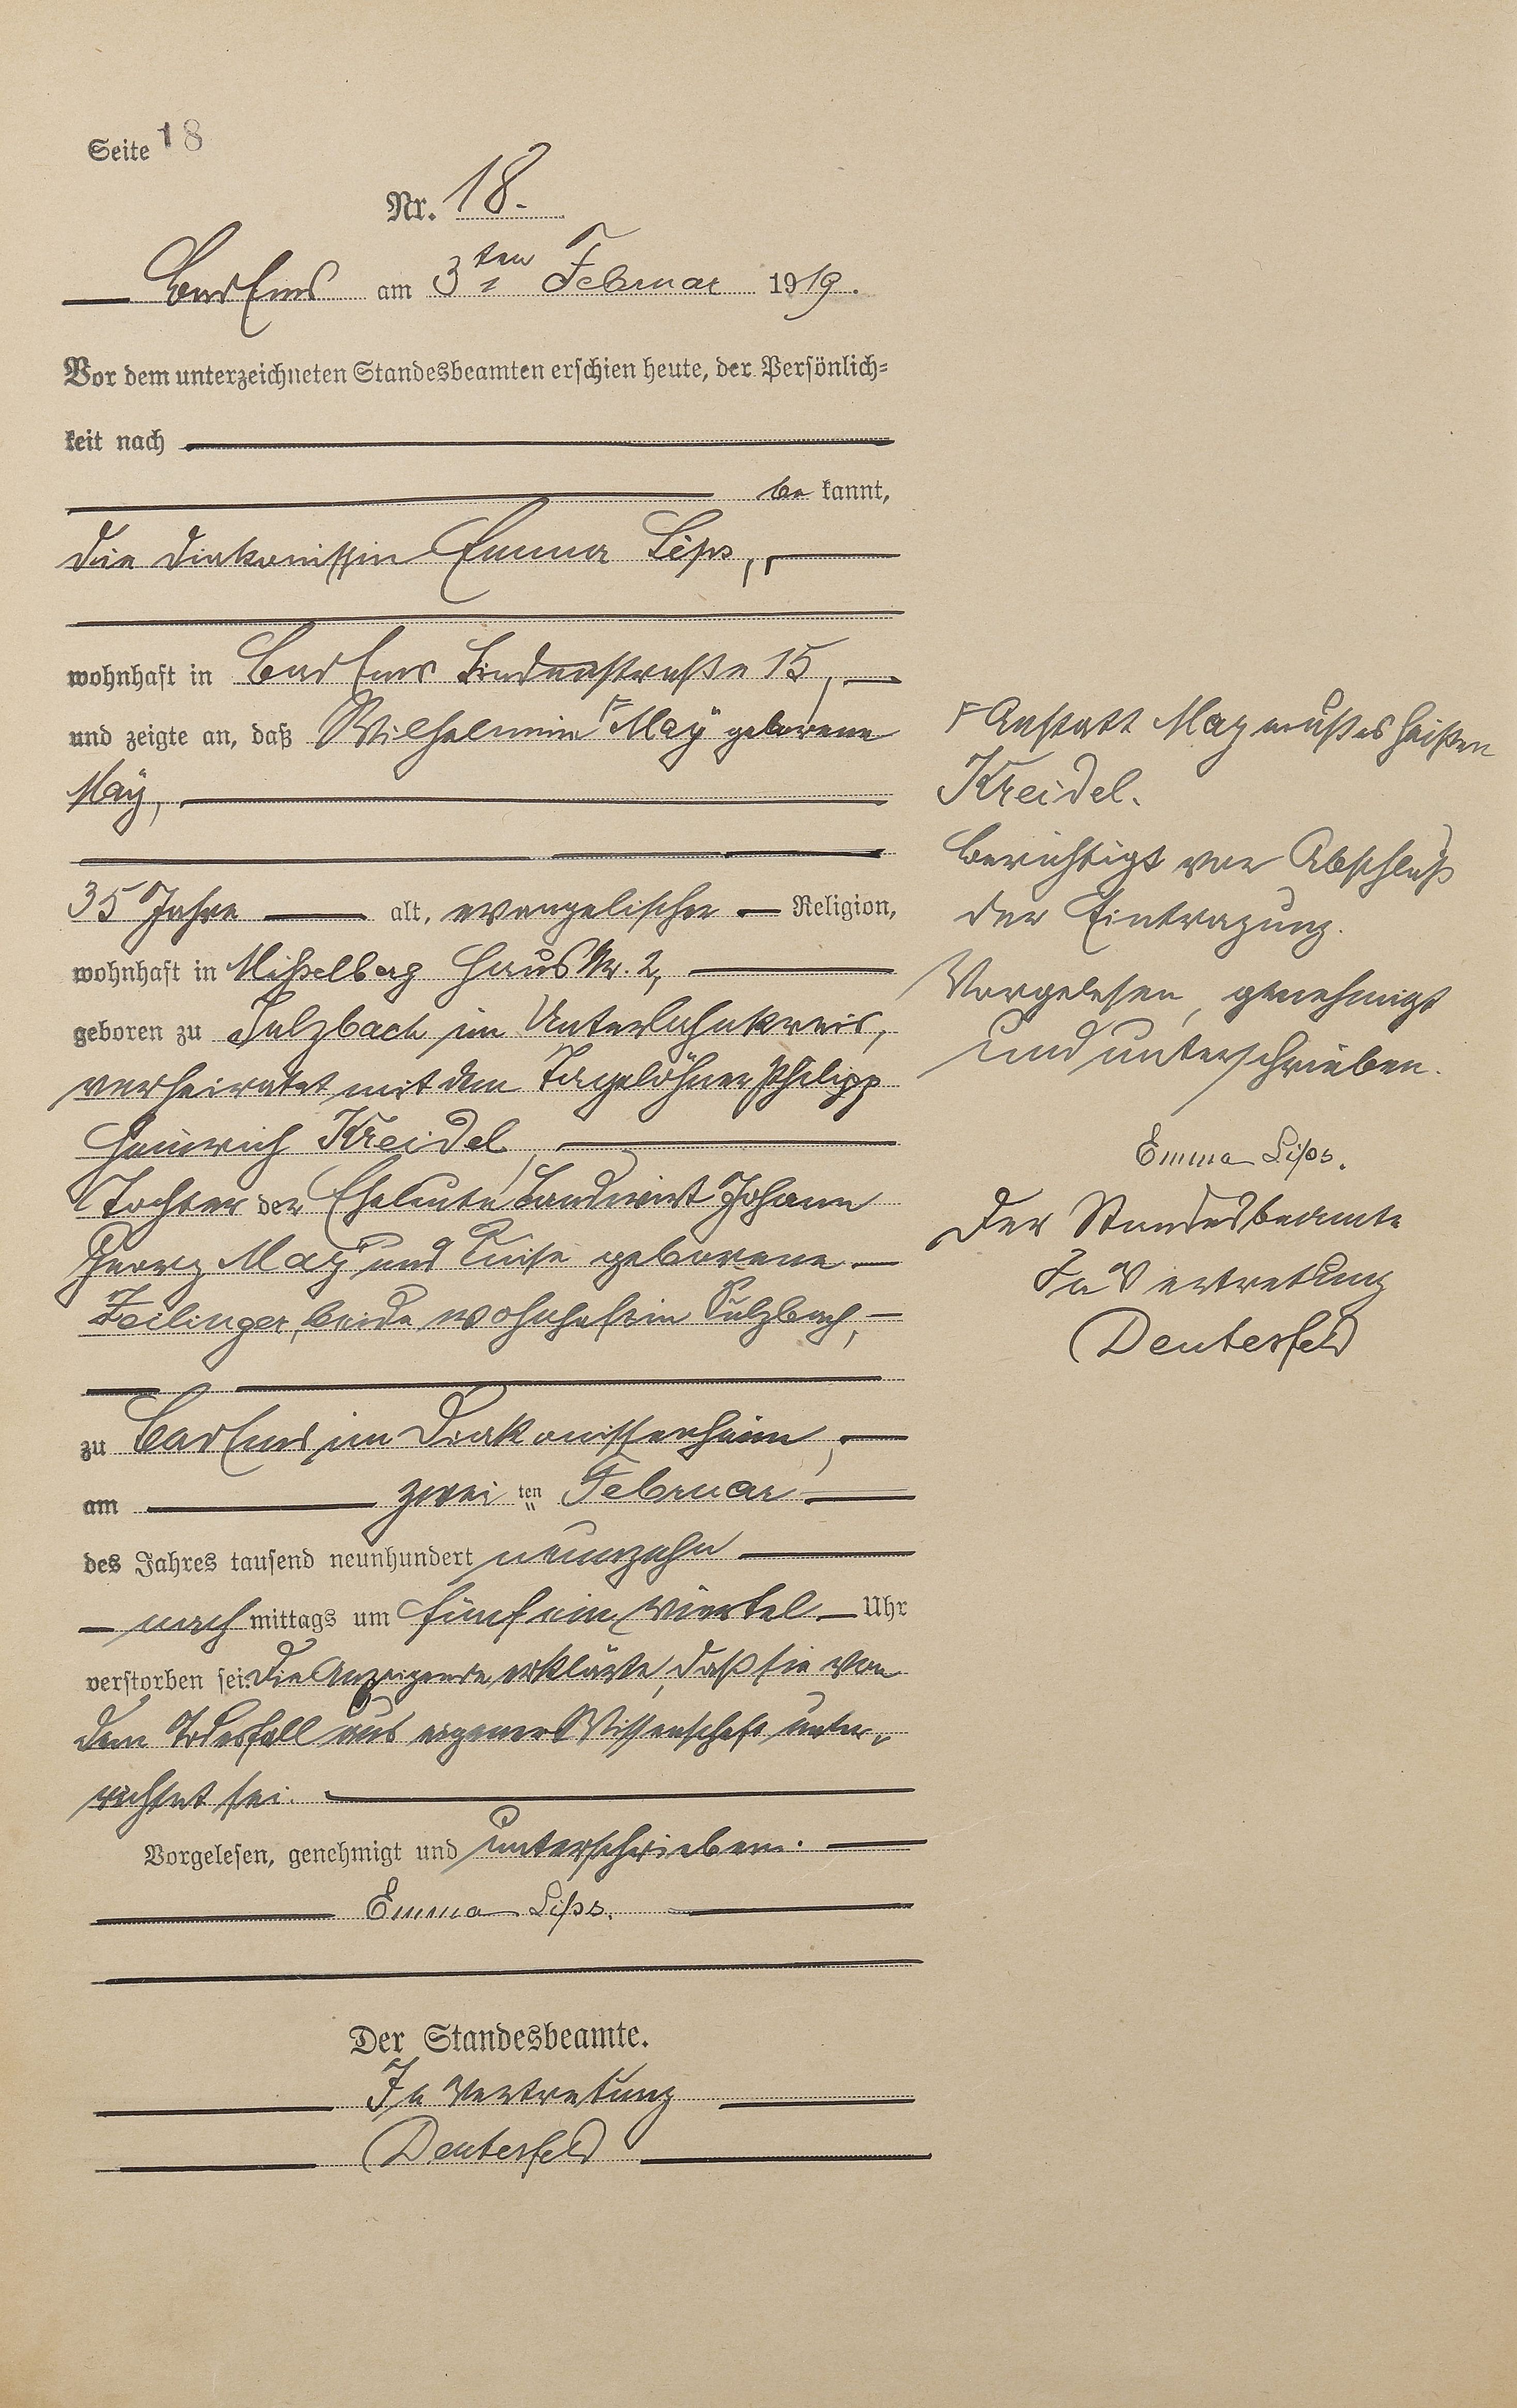 Seite 18
Nr. 18.
Bad Ems am 3ten Februar 1919.
Vor dem unterzeichneten Standesbeamten erschien heute, der Persönlich-
keit nach
be kannt,
die Diakonissin Emma Lips,
wohnhaft in Bad Ems Lindenstraße 15,
und zeigte an, daß Wilhelmine ꜰ Maÿ geborene
Maÿ,
35 Jahre alt, evangelischer Religion,
wohnhaft in Misselberg Haus Nr. 2,
geboren zu Sulzbach im Unterlahnkreis,
verheiratet mit dem Tagelöhner Philipp
Heinrich Kreidel,
Tochter der Eheleute Landwirt Johann
Georg Maÿ und Luise geborene
Zeilinger, beide wohnhaft in Sulzbach,
zu Bad Ems im Diakonissenheim,
am zwei ten Februar
des Jahres tausend neunhundert neunzehn
nach mittags um fünf ein viertel Uhr
verstorben sei. Die Anzeigende erklärte, daß sie von
dem Todesfall aus eigener Wissenschaft unter-
richtet sei.
Vorgelesen, genehmigt und unterschrieben.
Emma Lips.
Der Standesbeamte.
In Vertretung
Deutesfeld
ꜰ Anstatt May muß es heißen
Kreidel.
Berichtigt vor Abschluß
der Eintragung.
Vorgelesen, genehmigt
und unterschrieben.
Emma Lips.
Der Standesbeamte
In Vertretung
Deutesfeld